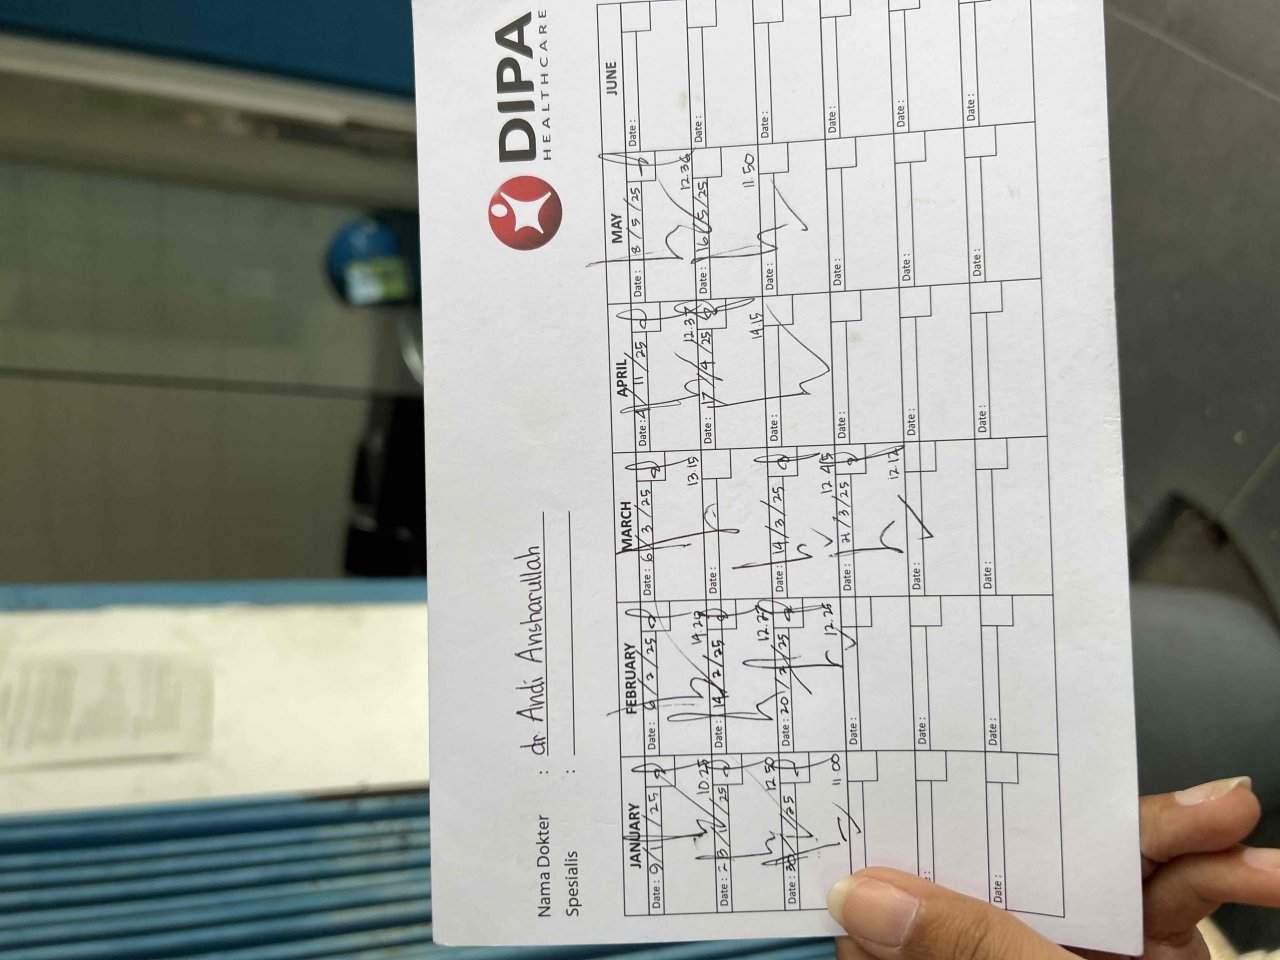 DIPA
HEALTHCARE
Nama Dokter : dr Andi Ansharullah
Spesialis :
JANUARY FEBRUARY MARCH APRIL MAY JUNE
Date: 9/1/25 Date: 6/2/25 Date: 6/3/25 Date: /11/25 Date: 8/5/25 Date:
10.25 14.29 13.15 12.37 12.36
Date: 23/1/25 Date: 14/2/25 Date: Date: 17/4/25 Date: 16/5/25 Date:
12.50 12.27 14.15 11.50
Date: 30/1/25 Date: 20/2/25 Date: 14/3/25 Date: Date: Date:
11.00 12.26 12.45
Date: Date: 21/3/25 Date: Date: Date:
12.12
Date: Date: Date: Date: Date:
Date: Date: Date: Date: Date: Date: